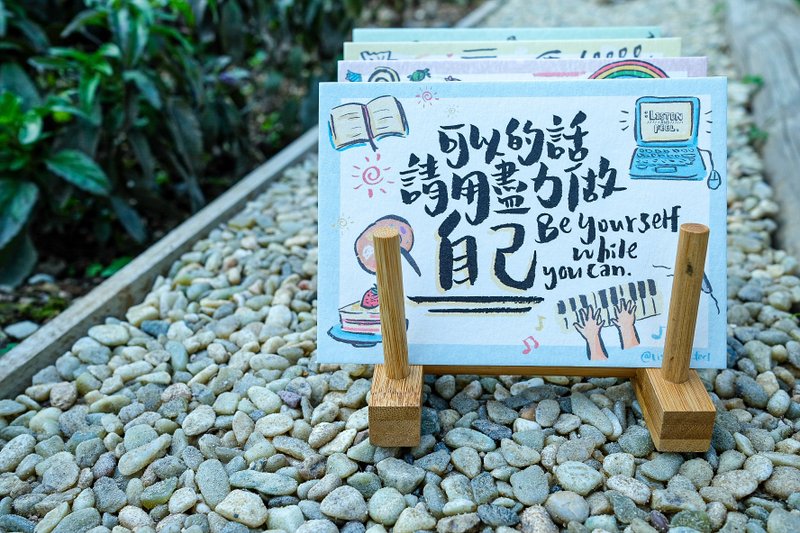 LISTEN
FEEL.
可以的話
請用盡力做
自己
Be yourself
while
you can.